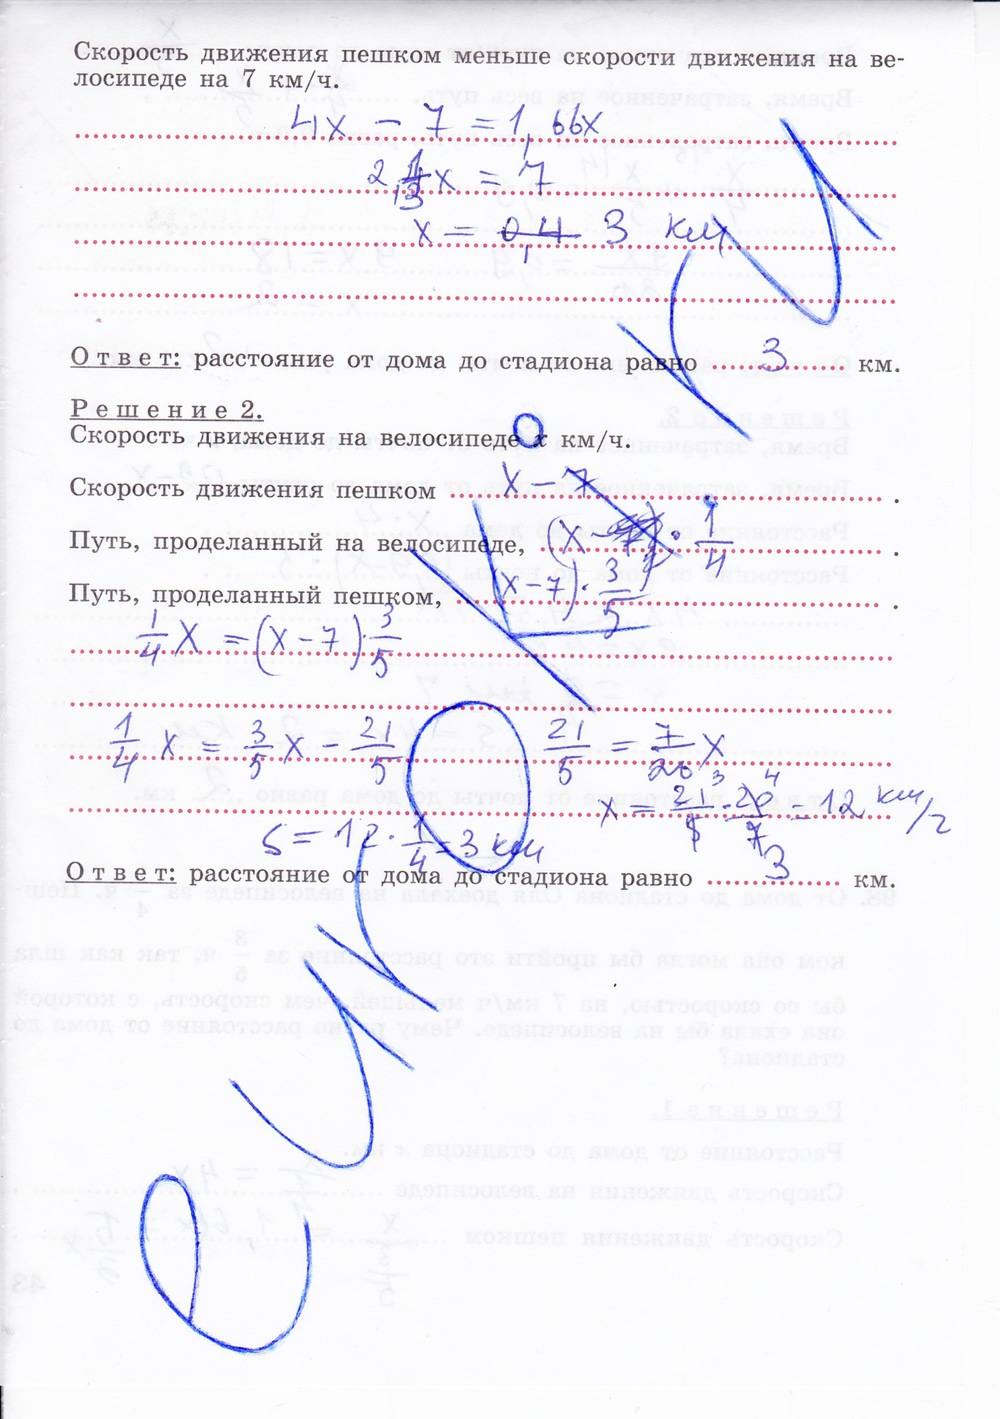 Скорость движения пешком меньше скорости движения на ве-
лосипеде на 7 км/ч.
4x − 7 = 1,66x
2 1/3 x = 7
x = 3 км
Ответ: расстояние от дома до стадиона равно 3 км.
Решение 2.
Скорость движения на велосипеде x км/ч.
Скорость движения пешком x − 7 .
Путь, проделанный на велосипеде, · 1/4 .
Путь, проделанный пешком, (x−7) · 3/5 .
1/4 x = (x−7) · 3/5
1/4 x = 3/5 x − 21/5 21/5 = 7/20 x
x = 21/5 · 20/7 = 12 км/ч
S = 12 · 1/4 = 3 км
Ответ: расстояние от дома до стадиона равно 3 км.